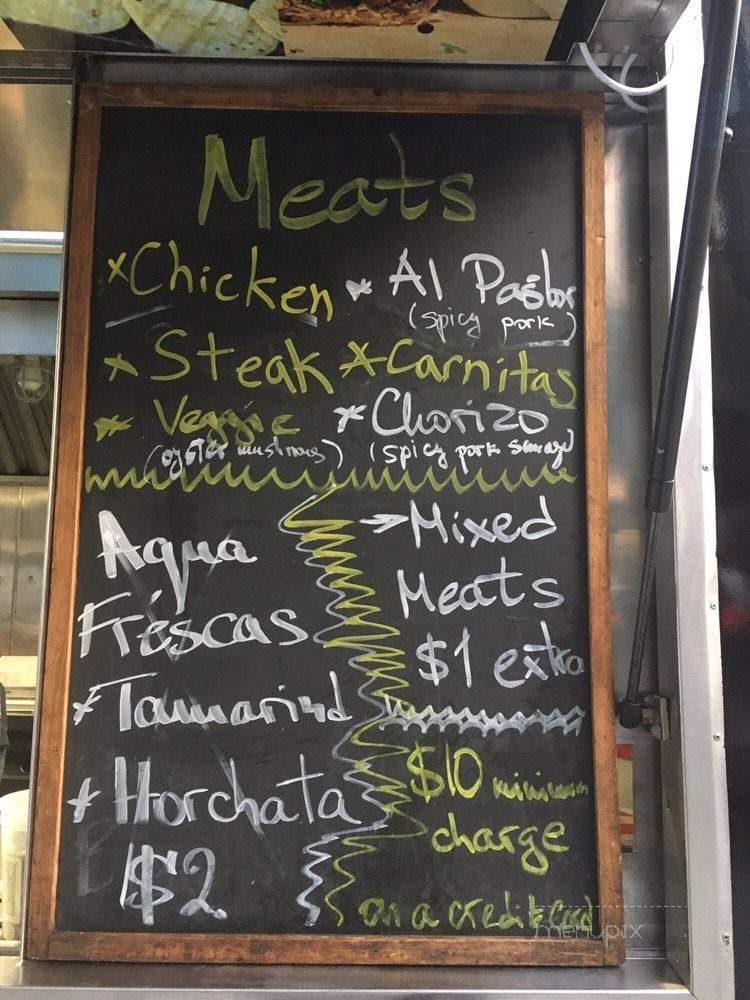 Meats
*Chicken
* Al Pastor
(spicy pork)
* Steak
* Carnitas
* Veggie
* Chorizo
(oyster mushroms)
(spicy pork sausage)
Aqua
Fréscas
* Tamarind
* Horchata
$2
→Mixed
Meats
$1 extra
$10 minimum
charge
on a credit card
menupix